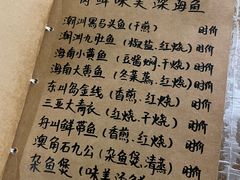 鲜味美深海鱼
潮汕黑马头鱼(干煎) 时价
潮汕九吐鱼(椒盐.红烧) 时价
海南小黄鱼(豆酱焖.干煎) 时价
海南大黄鱼(冬菜蒸.红烧) 时价
东山岛金线(香煎.红烧) 时价
三亚大青衣(红烧.干烧) 时价
舟山鲜带鱼(香煎.红烧) 时价
澳角石九公(杂鱼煲.清蒸) 时价
杂鱼煲(味美汤鲜)